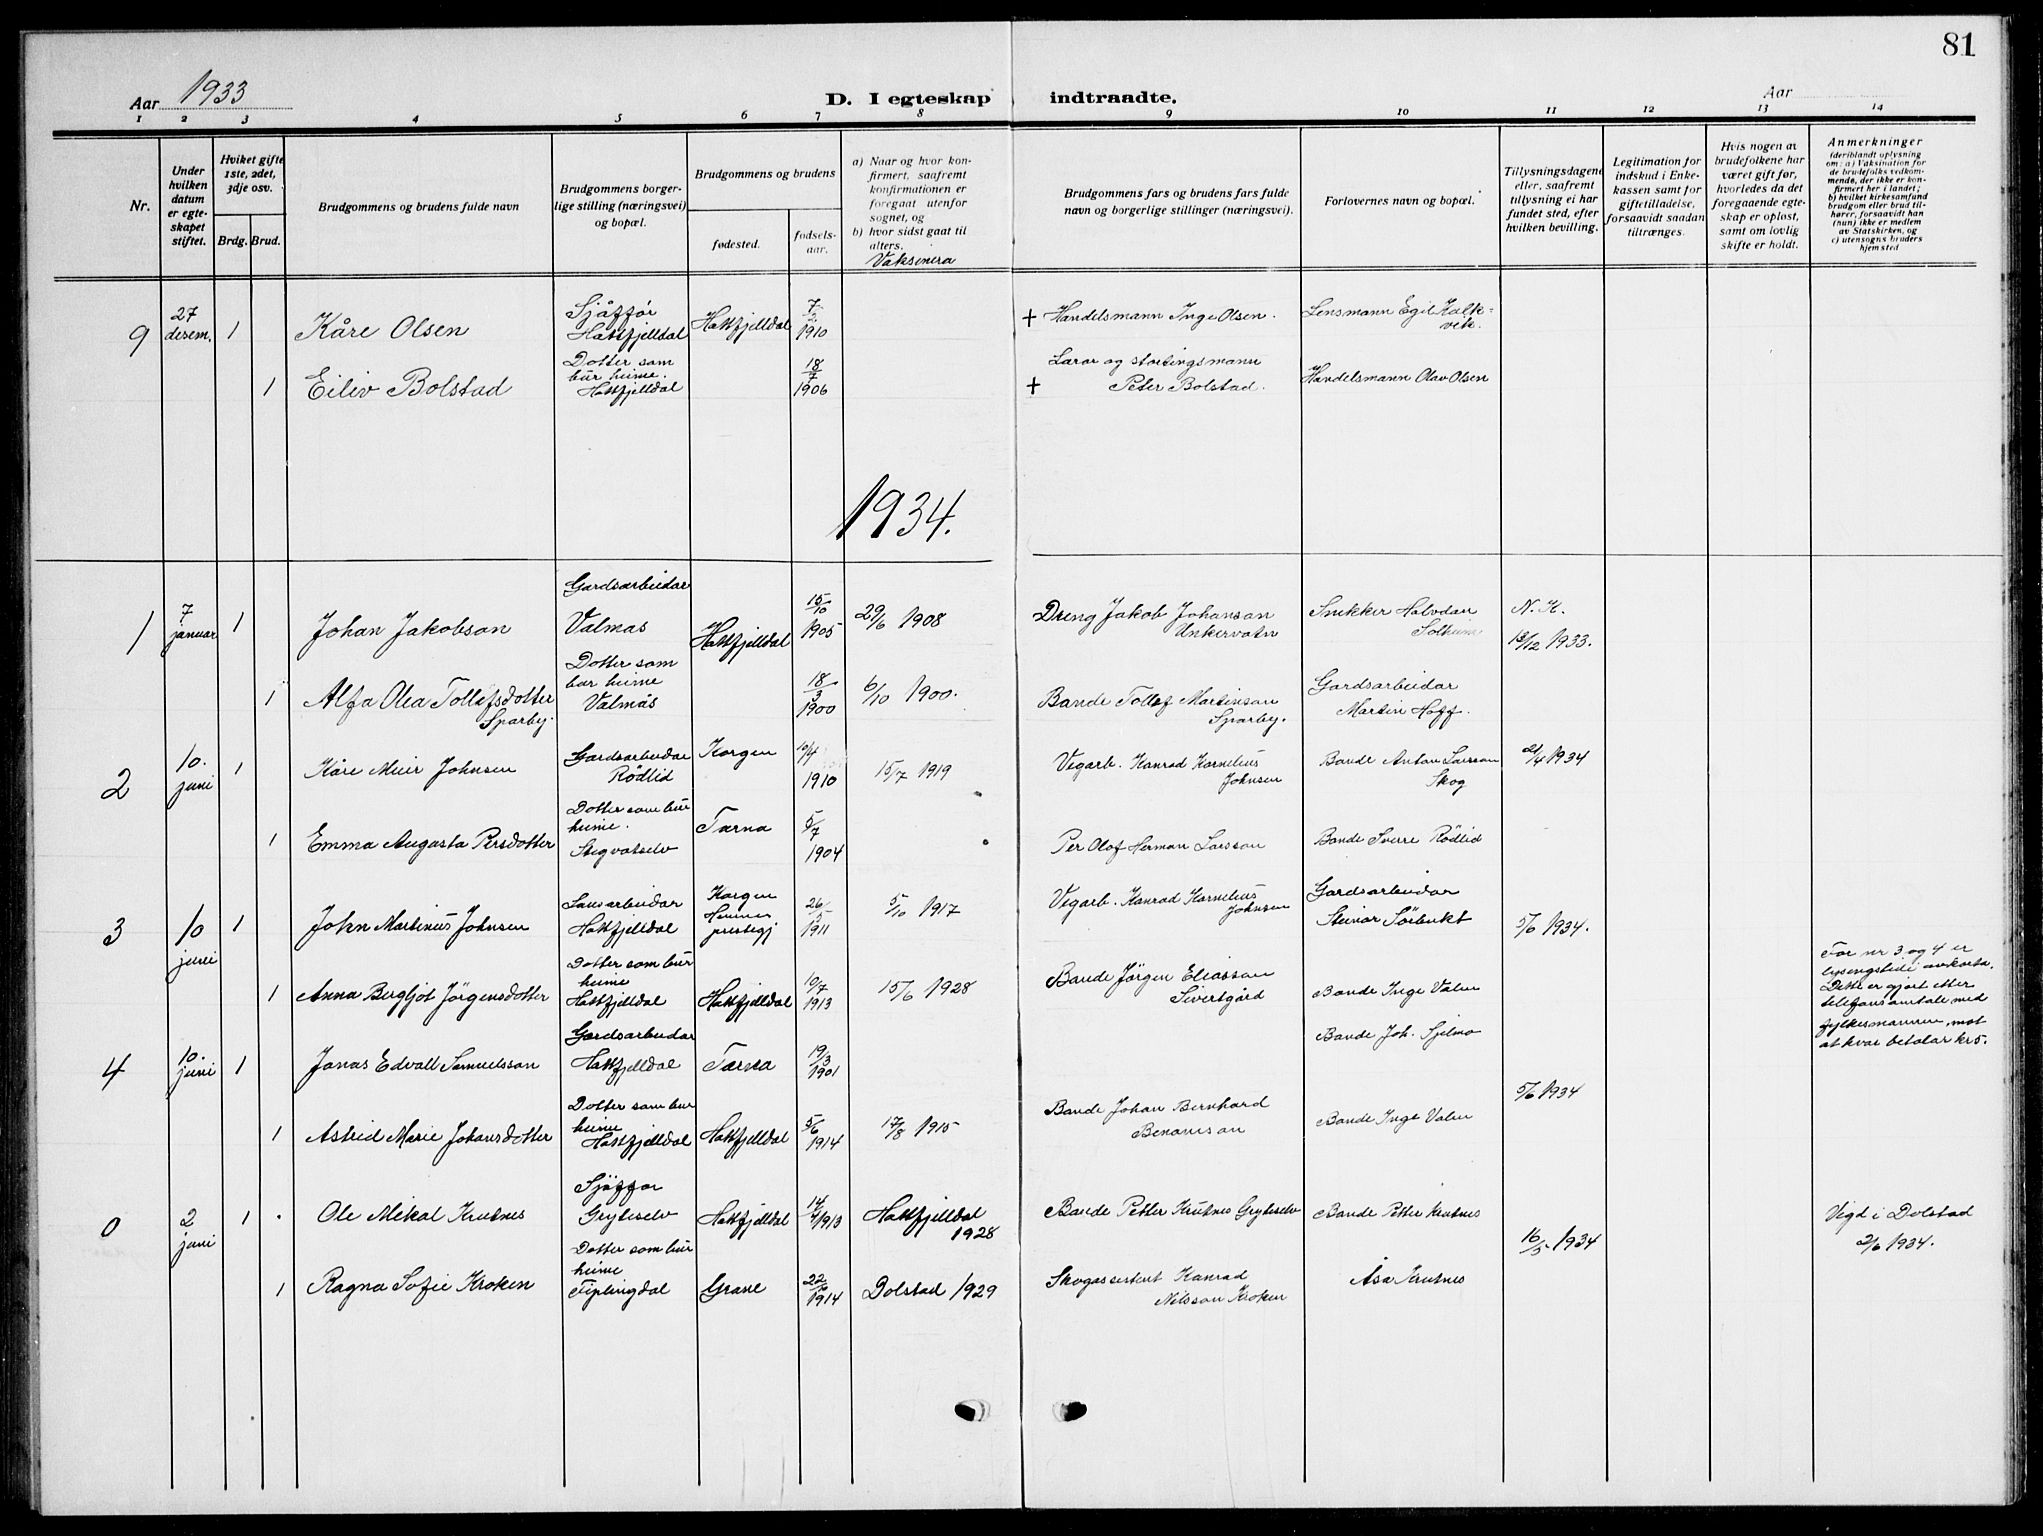 81
Aar 1933
D. I egteskap indtraadte.
Aar
1 2 3 4 5 6 7 8 9 10 11 12 13 14
Nr.
Under hvilken datum er egteskapet stiftet.
Hviket gifte 1ste, 2det, 3dje osv.
Brdg. Brud.
Brudgommens og brudens fulde navn
Brudgommens borgerlige stilling (næringsvei) og bopæl.
Brudgommens og brudens
fødested.
fødselsaar.
a) Naar og hvor konfirmert, saafremt konfirmationen er foregaat utenfor sognet, og
b) hvor sidst gaat til alters.
Vaksinera
Brudgommens fars og brudens fars fulde navn og borgerlige stillinger (næringsvei).
Forlovernes navn og bopæl.
Tillysningsdagene eller, saafremt tillysning ei har fundet sted, efter hvilken bevilling.
Legitimation for indskud i Enkekassen samt for giftetilladelse, forsaavidt saadan tiltrænges.
Hvis nogen av brudefolkene har været gift før, hvorledes da det foregaaende egteskap er opløst, samt om lovlig skifte er holdt.
Anmerkninger
(deriblandt oplysning om: a) Vaksination for de brudefolks vedkommende, der ikke er konfirmert her i landet; b) hvilket kirkesamfund brudgom eller brud tilhører, forsaavidt han (hun) ikke er medlem av Statskirken, og c) utensogns bruders hjemsted
9 27 desem. 1 Kåre Olsen Sjåffør Hattfjelldal Hattfjelldal 7/2 1910 † Handelsmann Inge Olsen. Lensmann Egil Kalkvik.
1 Eiliv Bolstad Dotter som bur heime. Hattfjelldal 18/7 1906 † Lærar og stortingsmann Peter Bolstad. Handelsmann Olav Olsen
1934.
1 7 januar 1 Johan Jakobson Gardsarbeidar Valmås Hattfjelldal 15/10 1905 29/6 1908 Dreng Jakob Johanson Unkervatn Snikker Halvdan Solheim N. K. 13/12 1933.
1 Alfa Olea Tollefsdotter Sparby. Dotter som bur heime Valmås 18/3 1900 6/10 1900. Bonde Tollef Martinson Sparby. Gardsarbeidar Martin Hoff.
2 10. juni 1 Kåre Meier Johnsen Gardsarbeidar Rödlid Korgen 10/4 1910 15/7 1919 Vegarb. Konrad Kornelius Johnsen Bonde Anton Larsson Skog 21/4 1934
1 Emma Augusta Persdotter Dotter som bur heime. Stegvatselv Tärna 5/7 1904 Per Olof Herman Larsson Bonde Sverre Rödlid
3 10 juni 1 John Martinius Johnsen Lausarbeidar Hattfjelldal Korgen Hemnes prestegj 26/5 1911 5/10 1917 Vegarb. Konrad Kornelius Johnsen Gardsarbeidar Steinar Sörbukt 5/6 1934.
1 Anna Bergljot Jörgensdotter Dotter som bur heime Hattfjelldal Hattfjelldal 10/7 1913 15/6 1928 Bonde Jörgen Eliasson Sivertgård Bonde Inge Valen
For nr 3 og 4 er lysingstidi avkorta. Dette er gjort etter telefonsamtale med fylkesmannen, mot at kvar betalar kr 5.
4 10. juni 1 Jonas Edvall Samuelsson Gardsarbeidar Hattfjelldal Tärna 19/3 1901 Bonde Joh. Sjelmo
5/6 1934
1 Astrid Marie Johansdotter Dotter som bur heime Hattfjelldal Hattfjelldal 5/6 1914 17/8 1915 Bonde Johan Bernhard Benonison Bonde Inge Valen
0 2 juni 1 Ole Mikal Krutnes Sjåffør Gryteselv Hattfjelldal 14/4 1913 Hattfjelldal 1928 Bonde Petter Krutnes Gryteselv Bonde Petter Krutnes 16/5 1934 Vigd i Dolstad 2/6 1934.
1 Ragna Sofie Kroken Dotter som bur heime Fiplingdal Grane 1914 Dolstad 1929 Skogassistent Konrad Nilsson Kroken Åsa Krutnes